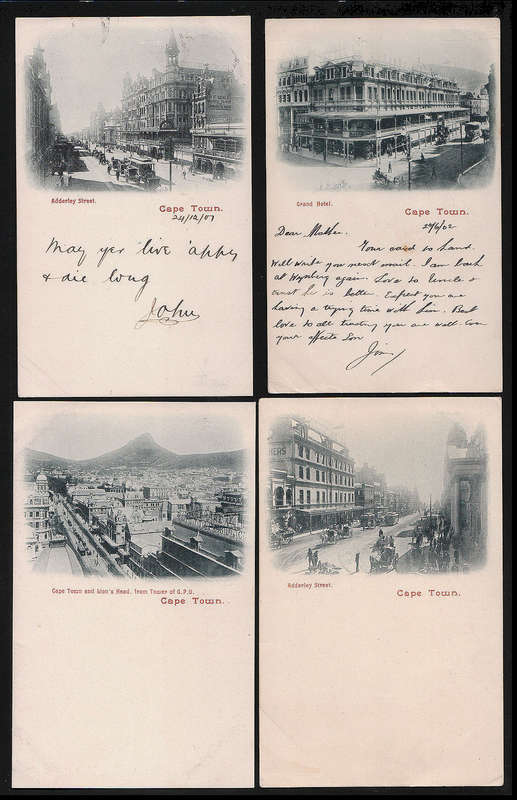 Adderley Street.
Cape Town.
24/12/01
May yer live 'appy
& die long
John
Grand Hotel.
Cape Town.
29/6/02
Dear Mother.
Your card to hand.
Will write you next mail. I am back
at Wynberg again. Love to Uncle &
trust he is better. Expect you are
having a trying time with him. Best
love to all trusting you are well
your affecte Son
Jim
Cape Town and Lion's Head, from Tower of G.P.O.
Cape Town.
Adderley Street.
Cape Town.